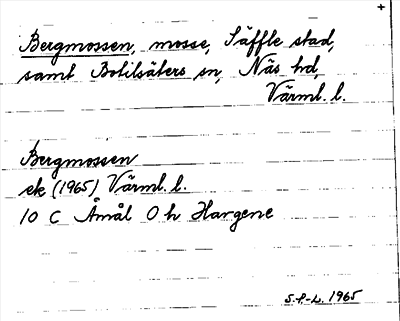 +
Bergmossen, mosse, Säffle stad,
samt Botilsäters sn, Näs hd,
Värml. l.
Bergmossen
ek (1965) Värml. l.
10 C Åmål 0 h Hargene
S.P-L. 1965